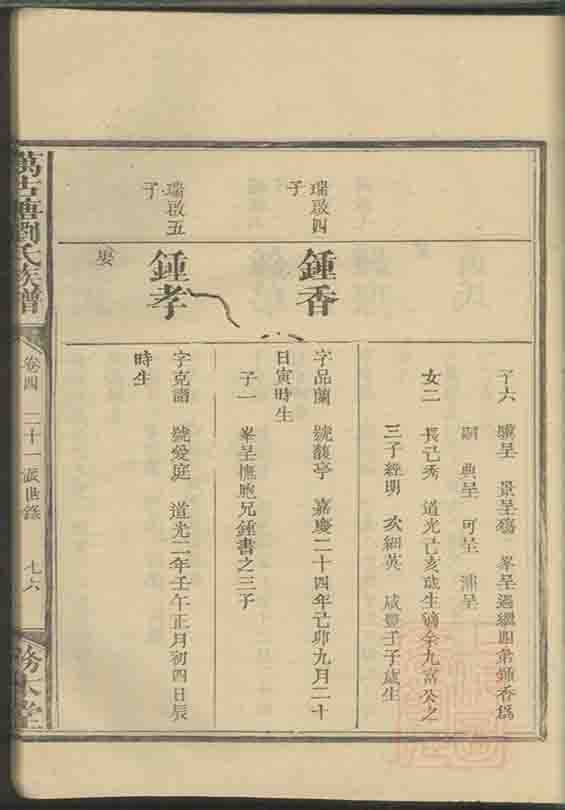 子六　驥呈　景呈殤　峯呈過繼四弟鍾香爲
嗣　典呈　可呈　浦呈
女二　長己秀　道光己亥歲生適余九富公之
三子經明　次細英　咸豐壬子歲生
瑞啟四
子
鍾香
字品蘭　號馥亭　嘉慶二十四年己卯九月二十
日寅時生
子一　峯呈撫胞兄鍾書之三子
瑞啟五
子
鍾孝
字克諧　號愛庭　道光二年壬午正月初四日辰
時生
娶
萬古塘劉氏族譜
卷四　二十一派世錄　七六
務本堂